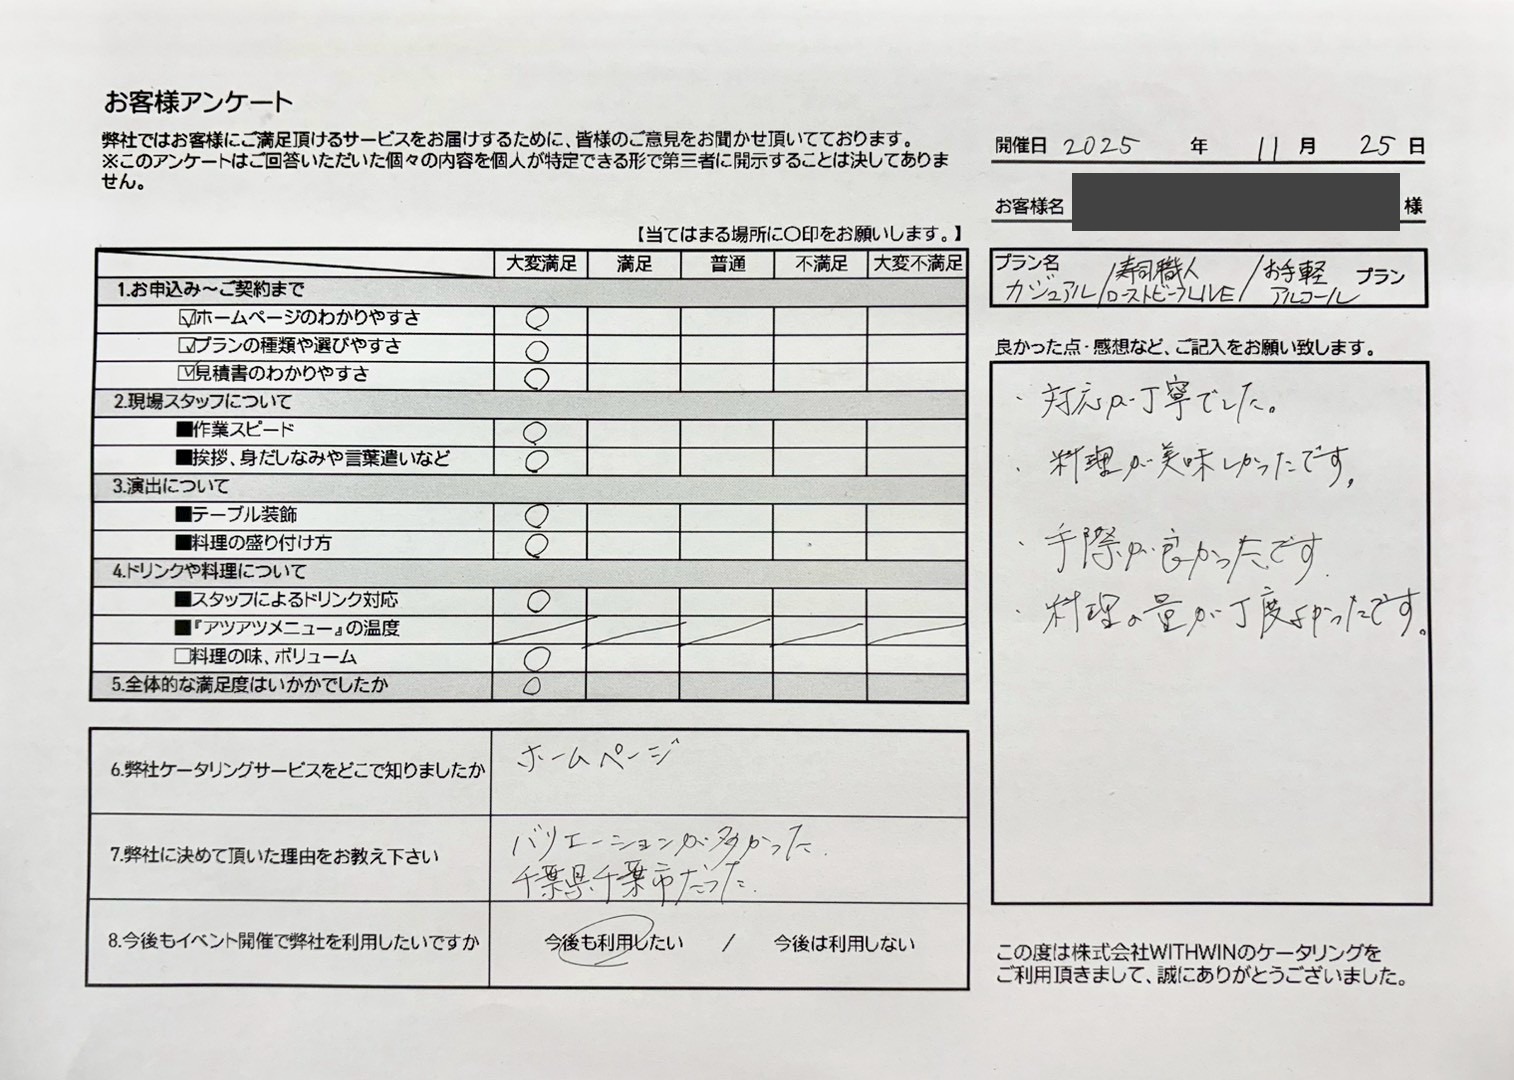 お客様アンケート
弊社ではお客様にご満足頂けるサービスをお届けするために、皆様のご意見をお聞かせ頂いてております。
※このアンケートはご回答いただいた個々の内容を個人が特定できる形で第三者に開示することは決してありま
せん。
開催日 2025 年 11 月 25 日
お客様名 様
【当てはまる場所に〇印をお願いします。】
プラン名 カジュアル/寿司職人 ローストビーフLIVE/お手軽 アルコール プラン
大変満足 満足 普通 不満足 大変不満足
1.お申込み～ご契約まで
☑ホームページのわかりやすさ ○
☑プランの種類や選びやすさ ○
☑見積書のわかりやすさ ○
2.現場スタッフについて
■作業スピード ○
■挨拶、身だしなみや言葉遣いなど ○
3.演出について
■テーブル装飾 ○
■料理の盛り付け方 ○
4.ドリンクや料理について
■スタッフによるドリンク対応 ○
■『アツアツメニュー』の温度
□料理の味、ボリューム ○
5.全体的な満足度はいかかでしたか ○
6.弊社ケータリングサービスをどこで知りましたか ホームページ
7.弊社に決めて頂いた理由をお教え下さい バリエーションが多かった.
千葉県千葉市だった.
8.今後もイベント開催で弊社を利用したいですか 今後も利用したい / 今後は利用しない
良かった点・感想など、ご記入をお願い致します。
・対応が丁寧でした。
・料理が美味しかったです。
・手際が良かったです.
・料理の量が丁度よかったです。
この度は株式会社WITHWINのケータリングを
ご利用頂きまして、誠にありがとうございました。